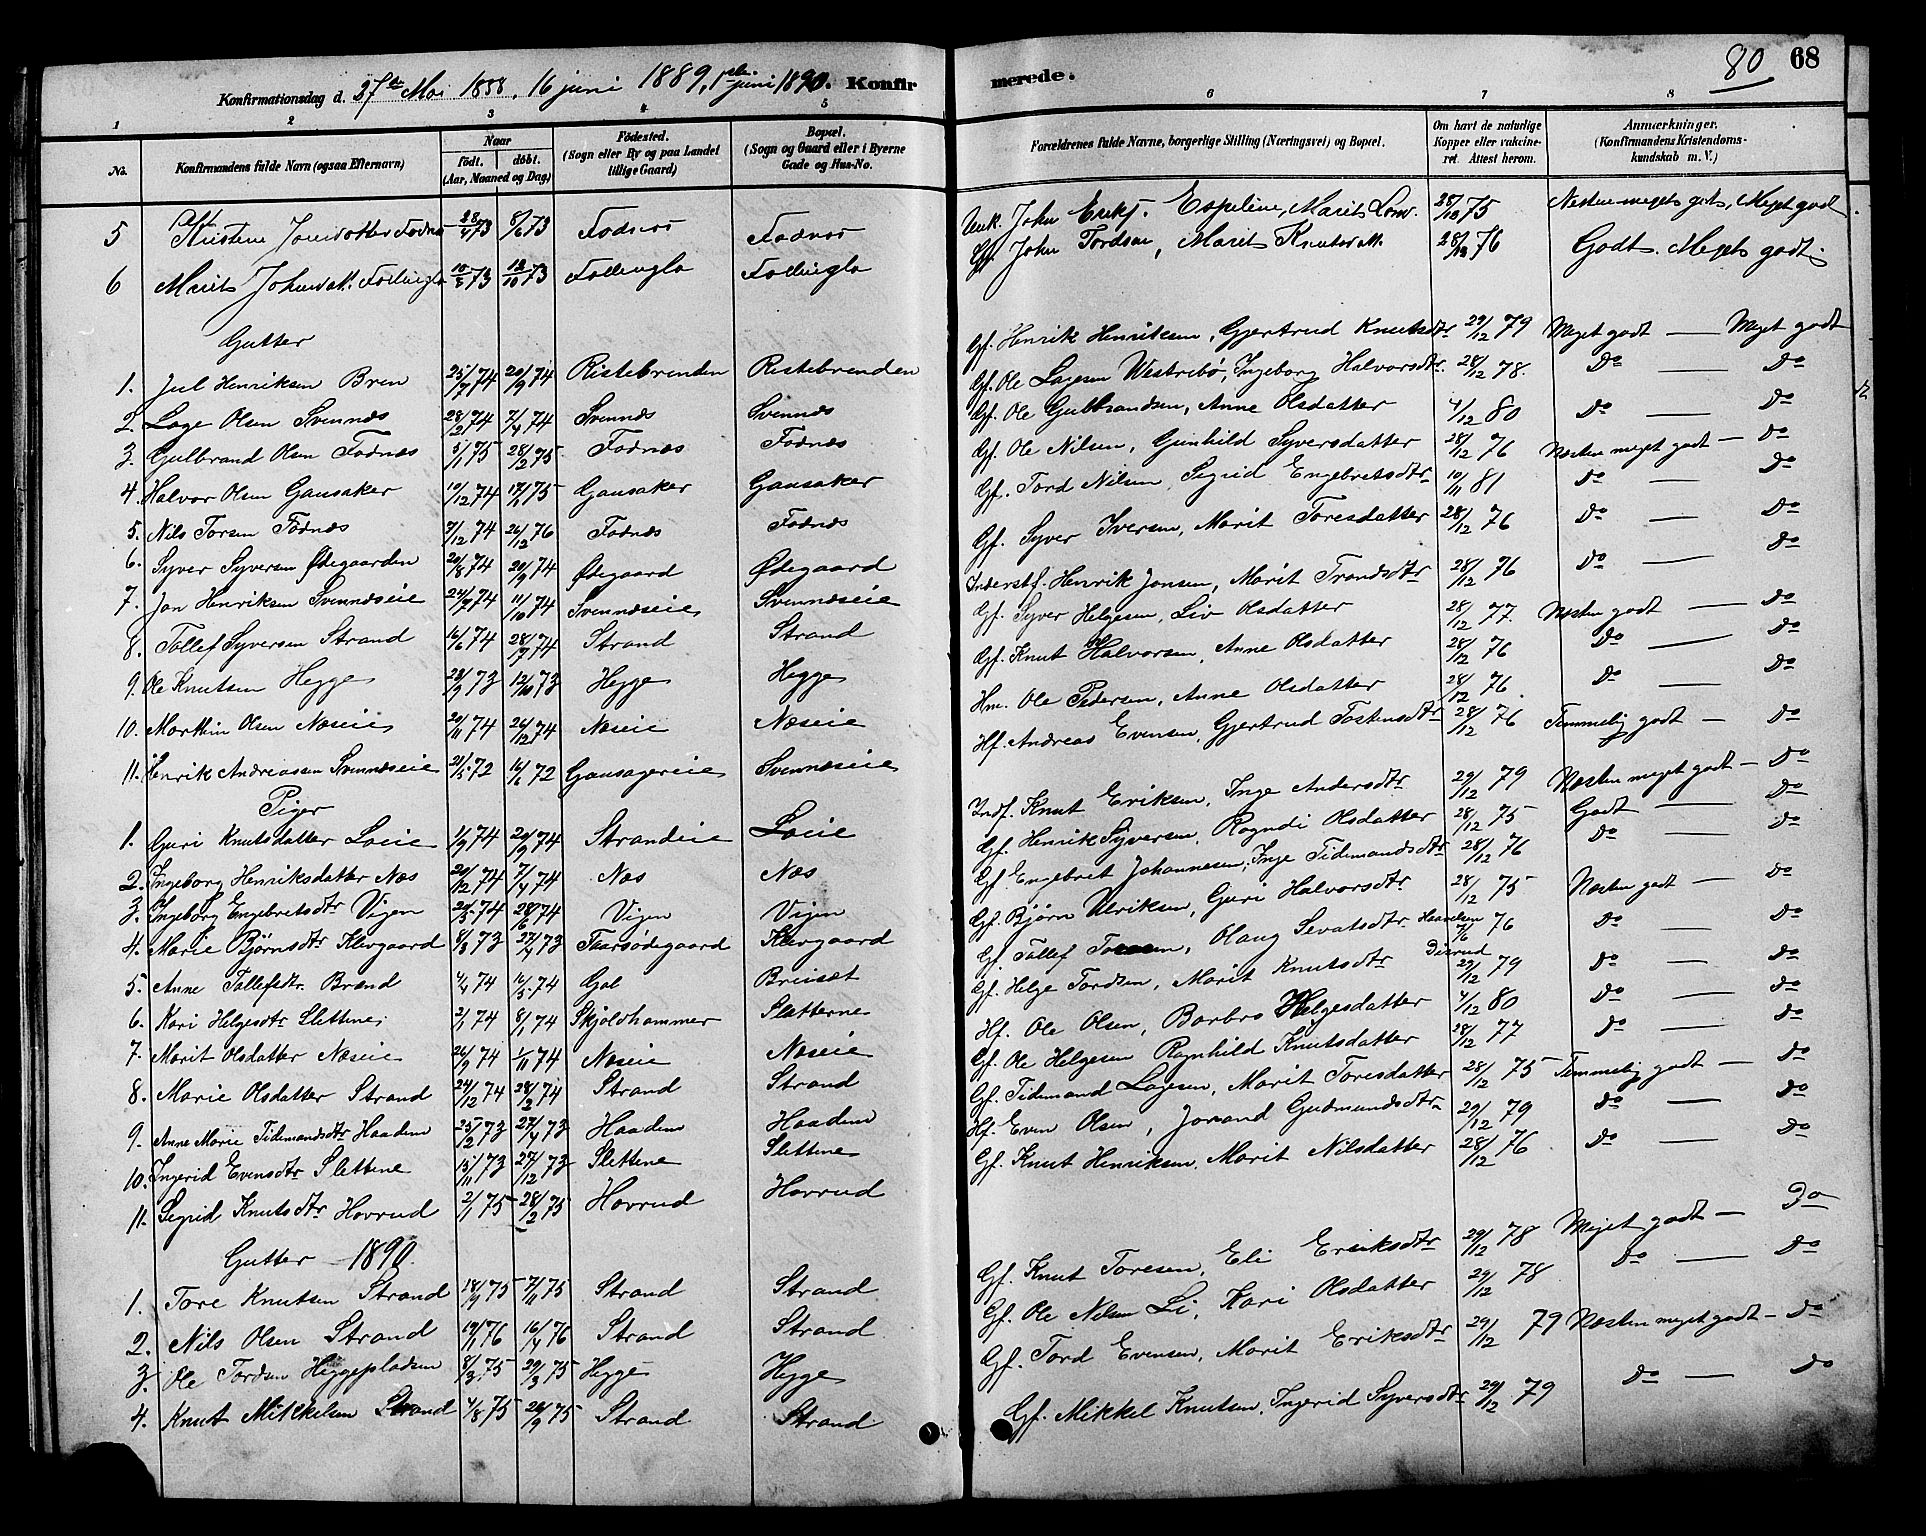 80 68
Konfirmationsdag d. 27de Mai 1888, 16 juni 1889, 1ste juni 1890. Konfirmerede.
1 2 3 4 5 6 7 8
No. Konfirmandens fulde Navn (ogsaa Efternavn) Naar født. døbt. (Aar, Maaned og Dag) Fødested. (Sogn eller By og paa Landet tillige Gaard) Bopæl. (Sogn og Gaard eller i Byerne Gade og Hus-No. Forældrenes fulde Navne, borgerlige Stilling (Næringsvei) og Bopæl. Om havt de naturlige Kopper eller vakcineret. Attest herom. Anmærkninger. (Konfirmandens Kristendomskundskab m. V.)
5 Kristene Fodnæs 28/4 73 8/6 73 Fodnæs Fodnæs John Eriks. Espeliene, Marit 28/12 75 Nesten meget godt, Meget godt
6 Marit Johnsdatt. Follinglo 10/5 73 12/10 73 Follinglo Follinglo Gf. John Tordsen, Marit Knutsdatt. 28/12 76 Godt. Meget godt.
Gutter
1. Jul Henriksen Bren 25/7 74 20/9 74 Ristebrenden Ristebrenden Gf. Henrik Henriksen, Gjertrud Knutsdtr 29/12 79 Meget godt — Meget godt
2. Lage Olsen Svennæs 28/2 74 7/4 74 Svennæs Svennæs Gf. Ole Lagesen Westrebø, Ingeborg Halvorsdtr. 28/12 78. Do — Do
3. Gulbrand Olsen Fodnæs 5/1 75 28/2 75 Fodnæs Fodnæs Gf. Ole Gulbrandsen, Anne Olsdatter 4/12 80 Do — Do
4. Halvor Olsen Gansaker 10/12 74 17/1 75 Gansaker Gansaker Gf. Ole Nilsen, Gunhild Syversdatter 28/12 76 Næsten meget godt — Do
5. Nils Torsen Fodnæs 7/12 74 26/12 76 Fodnæs Fodnæs Gf. Tord Nilsen, Sigrid Engebretsdtr 10/11 81 Do — Do
6. Syver Syversen Ødegaarden 20/8 74 20/9 74 Ødegaard Ødegaard Gf. Syver Iversen, Marit Toresdatter 28/12 76 Do — Do
7. Jon Henriksen Svennæseie 24/7 74 11/10 74 Svennæseie Svennæseie Inderstf. Henrik Jonsen, Marit Trondsdtr 28/12 76 Do — Do
8. Tollef Syversen Strand 16/6 74 28/7 74 Strand Strand Gf. Syver Helgesen, Liv Olsdatter 28/12 77. Næsten godt — Do
9. Ole Knutsen Hegge 28/9 73 12/10 73 Hegge Hegge Gf. Knut Halvorsen, Anne Olsdatter 28/12 76 Do — Do
10. Marthin Olsen Næseie 20/11 74 26/12 74 Næseie Næseie Hm. Ole Pedersen, Anne Olsdatter 28/12 76. Do — Do
11. Henrik Andreassen Svennæseie 21/5 72 16/6 72 Gansagereie Svennæseie Hf. Andreas Evensen, Gjertrud Tostensdtr 28/12 76 Temmelig godt — Do
Piger
1. Guri Knutsdatter Loeie 1/9 74 20/9 74 Strandeie Loeie Indf. Knut Eriksen, Inge Andersdtr 29/12 79 Næsten meget godt — Do
2. Ingeborg Henriksdatter Næs 20/12 74 7/4 74 Næs Næs Gf. Henrik Syversen, Ragndi Olsdatter 28/12 75 Godt — Do
3. Ingeborg Engebretsdtr Vigen 20/5 74 28/6 74 Vigen Vigen Gf. Engebret Johannesen, Inge Tidemandsdtr 28/12 76 Do — Do
4. Marie Bjørnsdtr Klevgaard 8/3 73 27/4 73 Taarsødegaard Klevgaard Gf. Bjørn Ulriksen, Guri Halvorsdtr 28/12 75 Næsten godt — Do
5. Anne Tollefsdtr. Brænd 4/4 74 16/5 74 Gol Breisæt Gf. Tollef Olaug Sevatsdtr 7/6 76 Do — Do
6. Kari Helgesdtr Slettene 2/1 74 8/1 74 Skjoldhammer Sletterne Gf. Helge Tordsen, Marit Knutsdtr 29/12 79 Do — Do
7. Marit Olsdatter Næseie 26/9 74 1/11 74 Næseie Næseie Hf. Ole Olsen, Barbro Helgesdatter 4/12 80 Do — Do
8. Marie Olsdatter Strand 24/12 74 28/2 74 Strand Strand Gf. Ole Helgesen Ragnhild Knutsdatter 28/12 77 Do — Do
9. Anne Marie Tidemandsdtr Haadem 25/2 73 27/4 73 Haadem Haadem Gf. Tidemand Lagesen, Marit Toresdatter 28/12 75 Temmelig godt — Do
10. Ingerid Evensdtr Slettene 15/11 73 27/12 73 Slettene Slettene Hf. Even Olsen, Jorand Gudmundsdtr 29/12 79 Do — Do
11. Sigrid Knutsdtr Hovrud 2/1 75 28/2 75 Hovrud Hovrud Gf. Knut Henriksen, Marit Nilsdatter 28/12 76 Do — Do
Gutter 1890
1. Tore Knutsen Strand 18/9 75 7/11 75 Strand Strand Gf. Knut Toresen, Eli Eriksdtr 29/12 78 Meget godt — Do
2. Nils Olsen Strand 19/1 76 16/4 76 Strand Strand Gf. Ole Nilsen Li, Kari Olsdatter 29/12 78 Do — Do
3. Ole Tordsen Heggepladsen 8/3 75 29/3 75 Hegge Hegge Gf. Tord Evensen, Marit Eriksdtr 29/12 79 Næsten meget godt — Do
4. Knut Mikkelsen Strand 4/8 75 20/9 75 Strand Strand Gf. Mikkel Knutsen, Ingerid Syversdtr 29/12 79 Do — Do